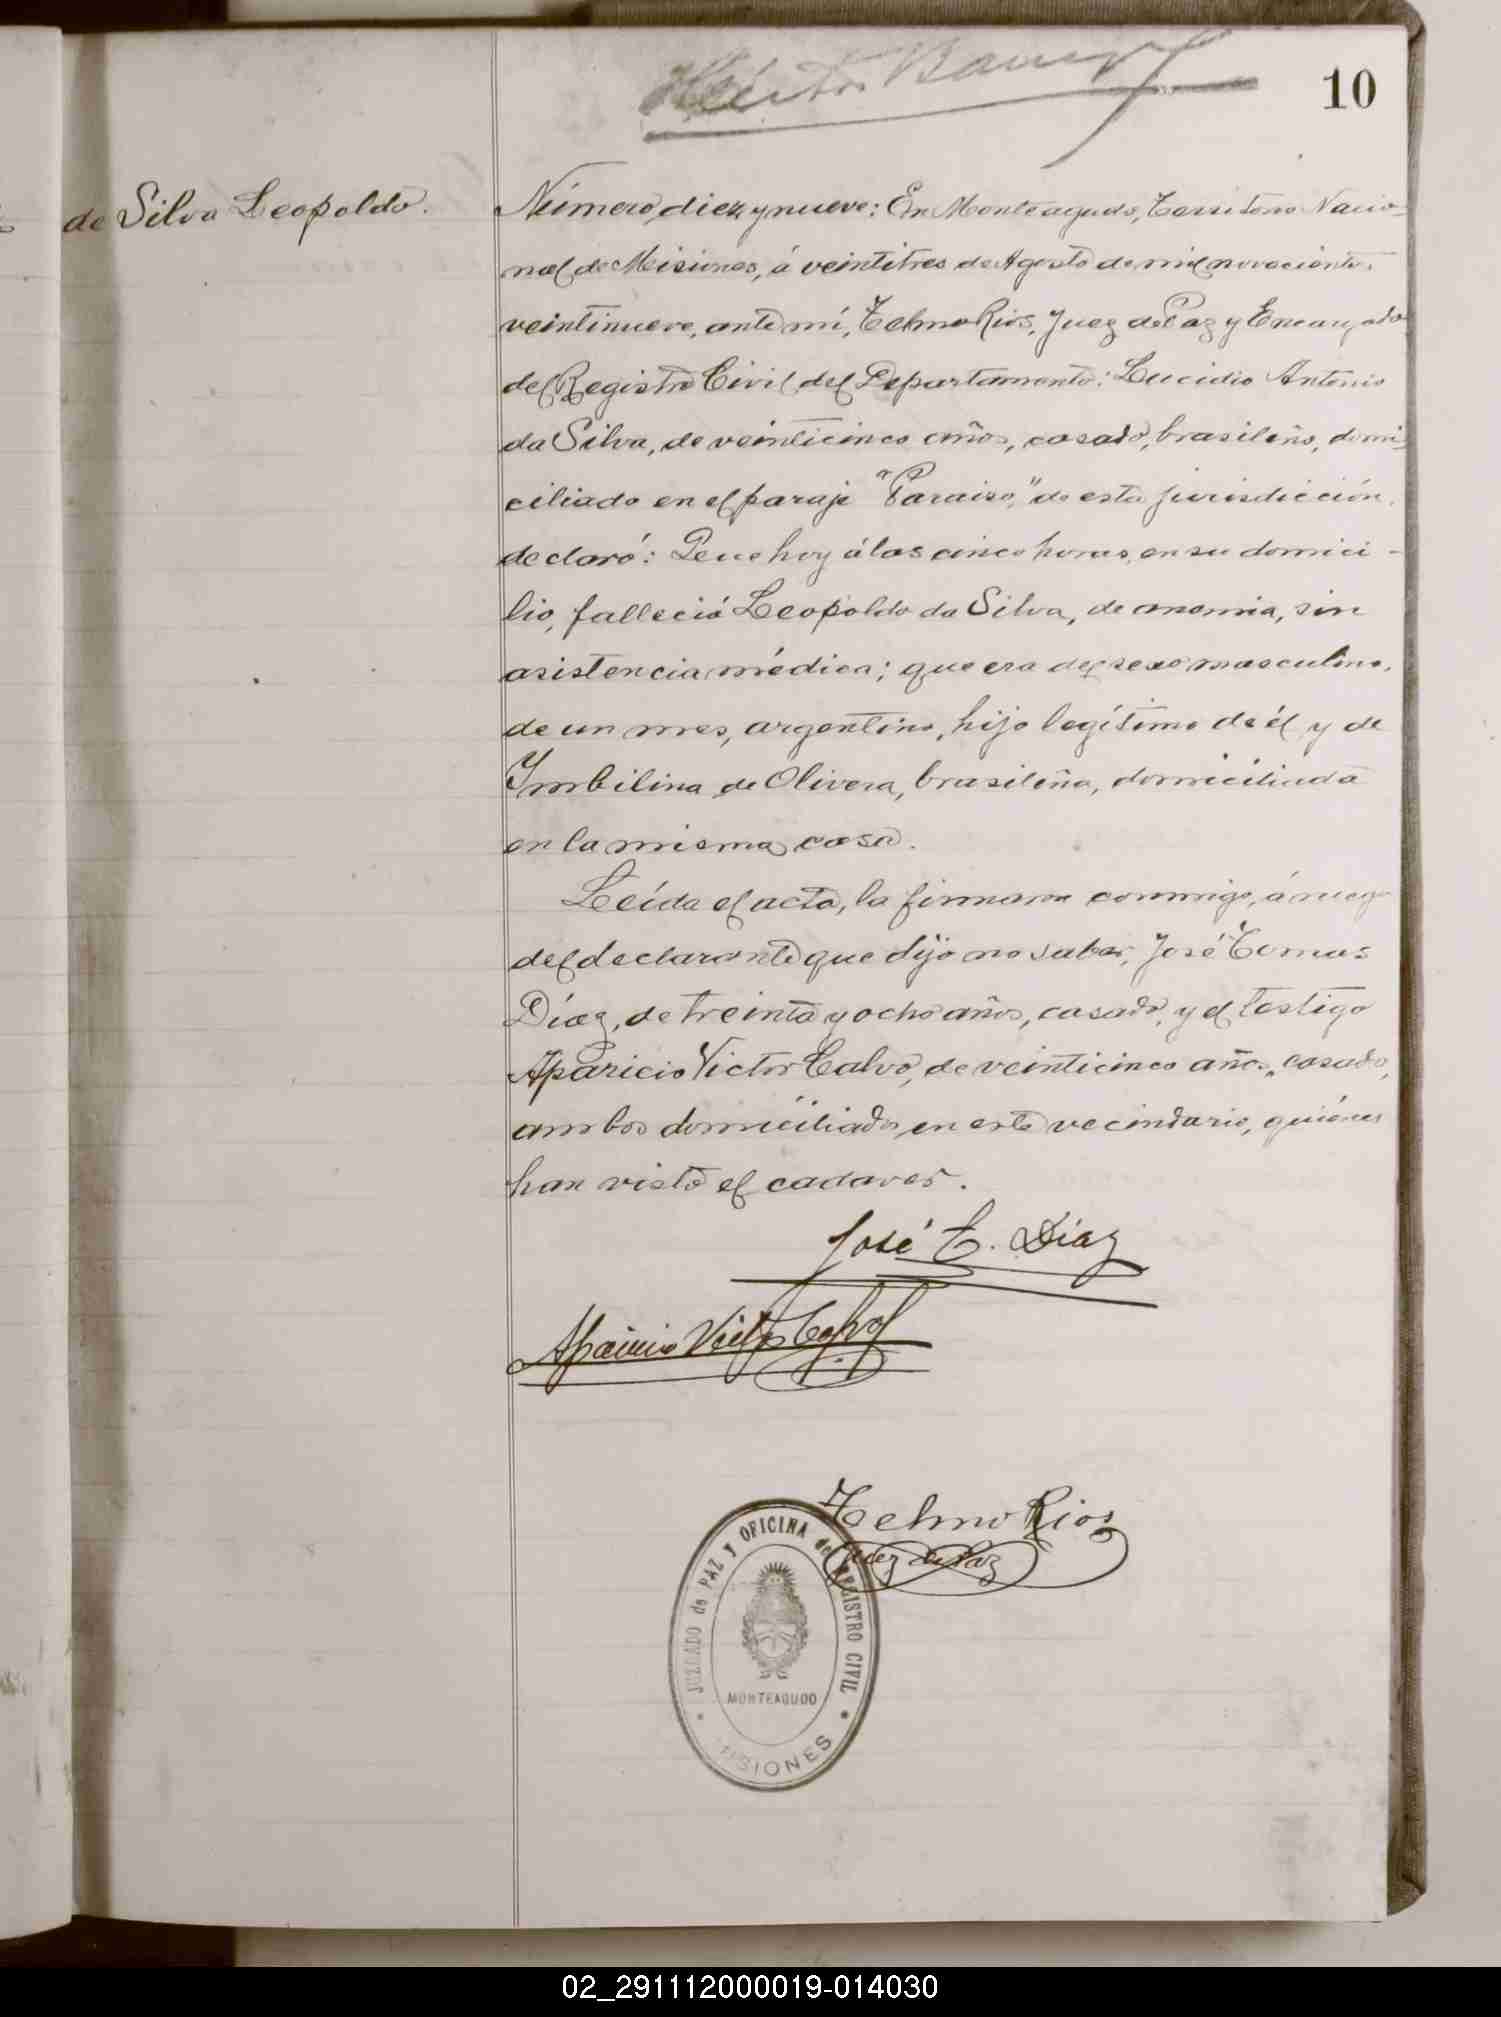 10
de Silva Leopoldo.
Número diez y nueve: En Monteagudo, Territorio Nacio-
nal de Misiones, á veintitres de Agosto de mil novecientos
veintinueve, ante mí, Telmo Rios, Juez de Paz y Encargado
del Registro Civil del Departamento: Lucidio Antonio
da Silva, de veinticinco años, casado, brasileño, domi-
ciliado en el paraje "Paraiso," de esta jurisdicción,
declaró: Que hoy á las cinco horas, en su domici-
lio, falleció Leopoldo da Silva, de anemia, sin
asistencia médica; que era del sexo masculino,
de un mes, argentino, hijo legítimo de él y de
Imbilina de Olivera, brasileña, domiciliada
en la misma casa.
Leída el acta, la firmaron conmigo, á ruego
del declarante que dijo no saber, José Tomas
Díaz, de treinta y ocho años, casado, y el testigo
Aparicio Victor Calvo, de veinticinco años, casado,
ambos domiciliados en este vecindario, quiénes
han visto el cadaver.
José T. Díaz
Aparicio Victor Calvo
Telmo Rios
Juez de Paz
JUZGADO de PAZ y OFICINA del REGISTRO CIVIL
MONTEAGUDO
MISIONES
02_291112000019-014030